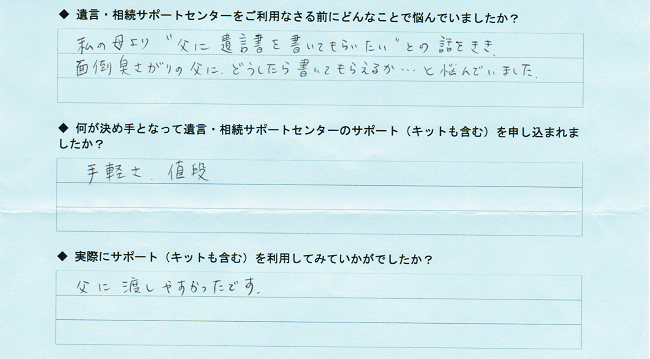 ◆ 遺言・相続サポートセンターをご利用なさる前にどんなことで悩んでいましたか？
私の母より“父に遺言書を書いてもらいたい”との話をきき、
面倒臭さがりの父に、どうしたら書いてもらえるか…と悩んでいました。
◆ 何が決め手となって遺言・相続サポートセンターのサポート（キットも含む）を申し込まれま
したか？
手軽さ、値段
◆ 実際にサポート（キットも含む）を利用してみていかがでしたか？
父に渡しやすかったです。